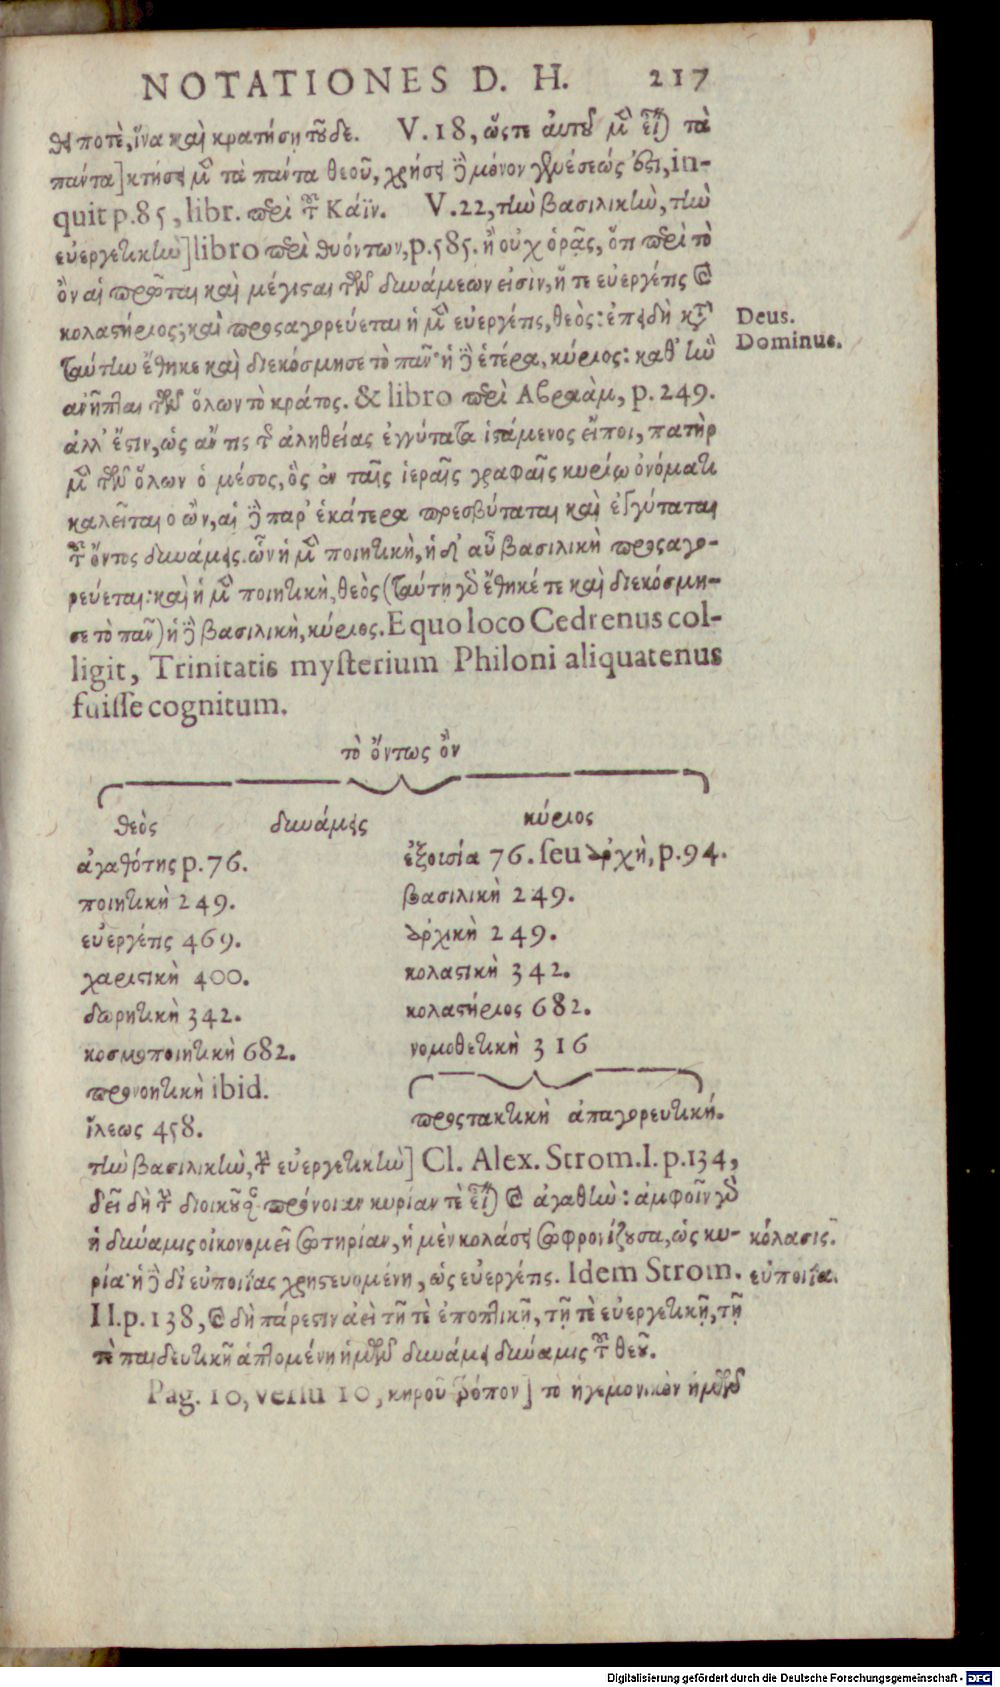 NOTATIONES D. H. 217
ποτὲ, ἵνα καὶ κρατήσῃ τοῦδε. V. 18, ὥςτε αὐτοῦ μὲν εἶναι τὰ
πάντα] κτήσει μὲν τὰ πάντα θεοῦ, χρήσει δὲ μόνον γενέσεώς ἐστι, in-
quit p. 85, libr. περὶ τοῦ Κάϊν. V. 22, τὴν βασιλικὴν, τὴν
εὐεργετικὴν] libro περὶ θυόντων, p. 585. ἢ οὐχ ὁρᾷς, ὅτι περὶ τὸ
ὂν αἱ πρῶται καὶ μέγισται τῶν δυνάμεων εἰσὶν, ἥ τε εὐεργέτις καὶ
κολαστήριος; καὶ προςαγορεύεται ἡ μὲν εὐεργέτις, θεὸς: ἐπειδὴ κατὰ
ταύτην ἔθηκε καὶ διεκόσμησε τὸ πᾶν· ἡ δὲ ἑτέρα, κύριος: καθ' ἣν
ἀνῆπται τῶν ὅλων τὸ κράτος. & libro περὶ Αβραὰμ, p. 249.
ἀλλ' ἔστιν, ὡς ἄν τις τῆς ἀληθείας ἐγγύτατα ἱστάμενος εἴποι, πατὴρ
μὲν τῶν ὅλων ὁ μέσος, ὃς ἐν ταῖς ἱεραῖς γραφαῖς κυρίῳ ὀνόματι
καλεῖται ο ὢν, αἱ δὲ παρ' ἑκάτερα πρεσβύταται καὶ ἐγγύταται
τοῦ ὄντος δυνάμεις. ὧν ἡ μὲν ποιητικὴ, ἡ δ' αὖ βασιλικὴ προςαγο-
ρεύεται: καὶ ἡ μὲν ποιητικὴ, θεὸς (ταύτῃ γὰρ ἔθηκέ τε καὶ διεκόσμη-
σε τὸ πᾶν) ἡ δὲ βασιλικὴ, κύριος. E quo loco Cedrenus col-
ligit, Trinitatis mysterium Philoni aliquatenus
fuisse cognitum.
Deus.
Dominus.
τὸ ὄντως ὂν
θεὸς δυνάμεις κύριος
ἀγαθότης p. 76. ἐξουσία 76. seu ἀρχὴ, p. 94.
ποιητικὴ 249. βασιλικὴ 249.
εὐεργέτις 469. ἀρχικὴ 249.
χαριστικὴ 400. κολαστικὴ 342.
δωρητικὴ 342. κολαστήριος 682.
κοσμοποιητικὴ 682. νομοθετικὴ 316
προνοητικὴ ibid.
ἵλεως 458. προςτακτικὴ ἀπαγορευτική.
τὴν βασιλικὴν, τὴν εὐεργετικὴν] Cl. Alex. Strom. I. p. 134,
δεῖ δὴ τὴν πρόνοιαν κυρίαν τὲ εἶναι καὶ ἀγαθὴν: ἀμφοῖν γὰρ
ἡ δύναμις οἰκονομεῖ σωτηρίαν, ἡ μὲν κολάσει σωφρονίζουσα, ὡς κυ-
ρία· ἡ δὲ δι' εὐποιΐας χρηστευομένη, ὡς εὐεργέτις. Idem Strom.
κόλασις.
εὐποιΐα.
II. p. 138, καὶ δὴ πάρεστιν ἀεὶ τῇ τὲ ἐποπτικῇ, τῇ τὲ εὐεργετικῇ, τῇ
τὲ παιδευτικῇ ἁπτομένη ἡμῶν δυνάμει δύναμις τοῦ θεοῦ.
Pag. 10, versu 10, κηροῦ τρόπον] τὸ ἡγεμονικὸν ἡμῶν
Digitalisierung gefördert durch die Deutsche Forschungsgemeinschaft - DFG